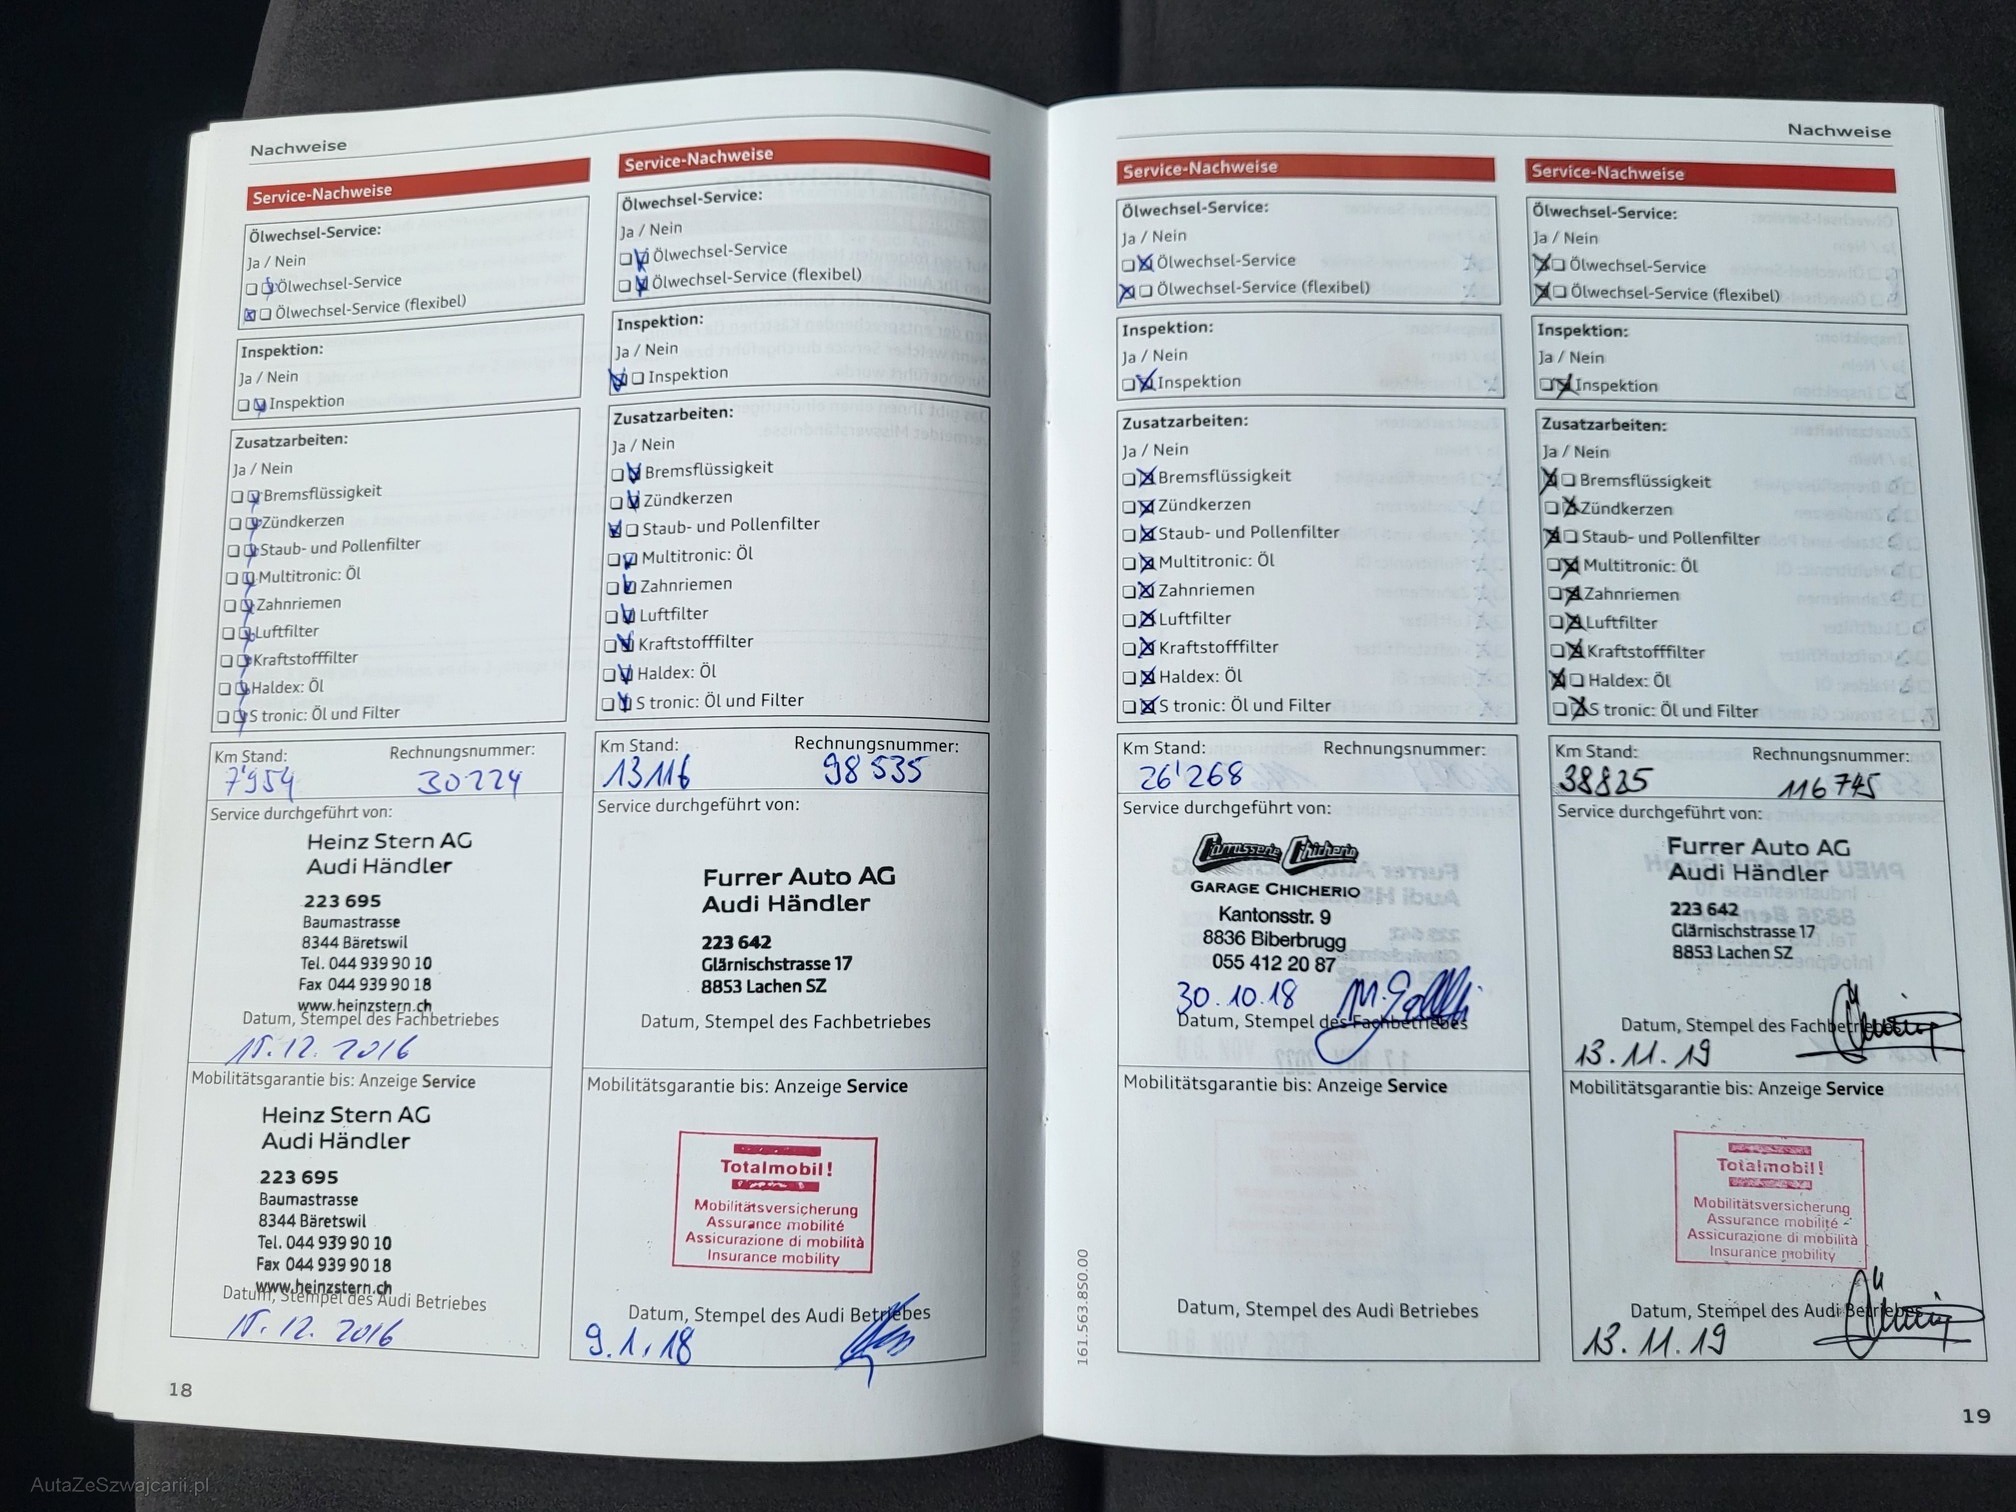 Nachweise
Service-Nachweise
Ölwechsel-Service:
Ja / Nein
Ölwechsel-Service
Ölwechsel-Service (flexibel)
Inspektion:
Ja / Nein
Inspektion
Zusatzarbeiten:
Ja / Nein
Bremsflüssigkeit
Zündkerzen
Staub- und Pollenfilter
Multitronic: Öl
Zahnriemen
Luftfilter
Kraftstofffilter
Haldex: Öl
S tronic: Öl und Filter
Km Stand: Rechnungsnummer:
7'954 30224
Service durchgeführt von:
Heinz Stern AG
Audi Händler
223 695
Baumastrasse
8344 Bäretswil
Tel. 044 939 90 10
Fax 044 939 90 18
www.heinzstern.ch
Datum, Stempel des Fachbetriebes
15.12.2016
Mobilitätsgarantie bis: Anzeige Service
Heinz Stern AG
Audi Händler
223 695
Baumastrasse
8344 Bäretswil
Tel. 044 939 90 10
Fax 044 939 90 18
www.heinzstern.ch
Datum, Stempel des Audi Betriebes
15.12.2016
18
Service-Nachweise
Ölwechsel-Service:
Ja / Nein
Ölwechsel-Service
Ölwechsel-Service (flexibel)
Inspektion:
Ja / Nein
Inspektion
Zusatzarbeiten:
Ja / Nein
Bremsflüssigkeit
Zündkerzen
Staub- und Pollenfilter
Multitronic: Öl
Zahnriemen
Luftfilter
Kraftstofffilter
Haldex: Öl
S tronic: Öl und Filter
Km Stand: Rechnungsnummer:
13116 98535
Service durchgeführt von:
Furrer Auto AG
Audi Händler
223 642
Glärnischstrasse 17
8853 Lachen SZ
Datum, Stempel des Fachbetriebes
Mobilitätsgarantie bis: Anzeige Service
Totalmobil!
Mobilitätsversicherung
Assurance mobilité
Assicurazione di mobilità
Insurance mobility
Datum, Stempel des Audi Betriebes
9.1.18
Nachweise
Service-Nachweise
Ölwechsel-Service:
Ja / Nein
Ölwechsel-Service
Ölwechsel-Service (flexibel)
Inspektion:
Ja / Nein
Inspektion
Zusatzarbeiten:
Ja / Nein
Bremsflüssigkeit
Zündkerzen
Staub- und Pollenfilter
Multitronic: Öl
Zahnriemen
Luftfilter
Kraftstofffilter
Haldex: Öl
S tronic: Öl und Filter
Km Stand: Rechnungsnummer:
26'268
Service durchgeführt von:
Carrosserie Chicherio
GARAGE CHICHERIO
Kantonsstr. 9
8836 Biberbrugg
055 412 20 87
30.10.18
Datum, Stempel des Fachbetriebes
Mobilitätsgarantie bis: Anzeige Service
Datum, Stempel des Audi Betriebes
161.563.850.00
Service-Nachweise
Ölwechsel-Service:
Ja / Nein
Ölwechsel-Service
Ölwechsel-Service (flexibel)
Inspektion:
Ja / Nein
Inspektion
Zusatzarbeiten:
Ja / Nein
Bremsflüssigkeit
Zündkerzen
Staub- und Pollenfilter
Multitronic: Öl
Zahnriemen
Luftfilter
Kraftstofffilter
Haldex: Öl
S tronic: Öl und Filter
Km Stand: Rechnungsnummer:
38835 116745
Service durchgeführt von:
Furrer Auto AG
Audi Händler
223 642
Glärnischstrasse 17
8853 Lachen SZ
Datum, Stempel des Fachbetriebes
13.11.19
Mobilitätsgarantie bis: Anzeige Service
Totalmobil!
Mobilitätsversicherung
Assurance mobilité
Assicurazione di mobilità
Insurance mobility
Datum, Stempel des Audi Betriebes
13.11.19
19
AutaZeSzwajcarii.pl